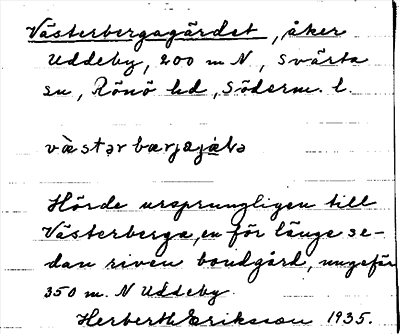 Västerbergagärdet, åker
Uddeby, 200 m N, Svärta
sn, Rönö hd, Söderm. l.
Hörde ursprungligen till
Västerberga, en för länge se-
dan riven bondgård, ungefär
350 m. N Uddeby.
Herbert Eriksson 1935.